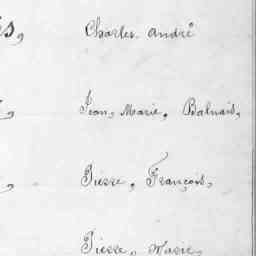 s, Charles André
, Jean, Marie, Balnais,
, Pierre, François,
Pierre, Marie,